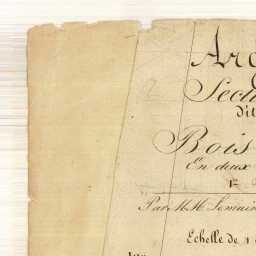 Arc
Secti
dit
Bois
En deux
1re
Par M. M. Lemain
Echelle de 1